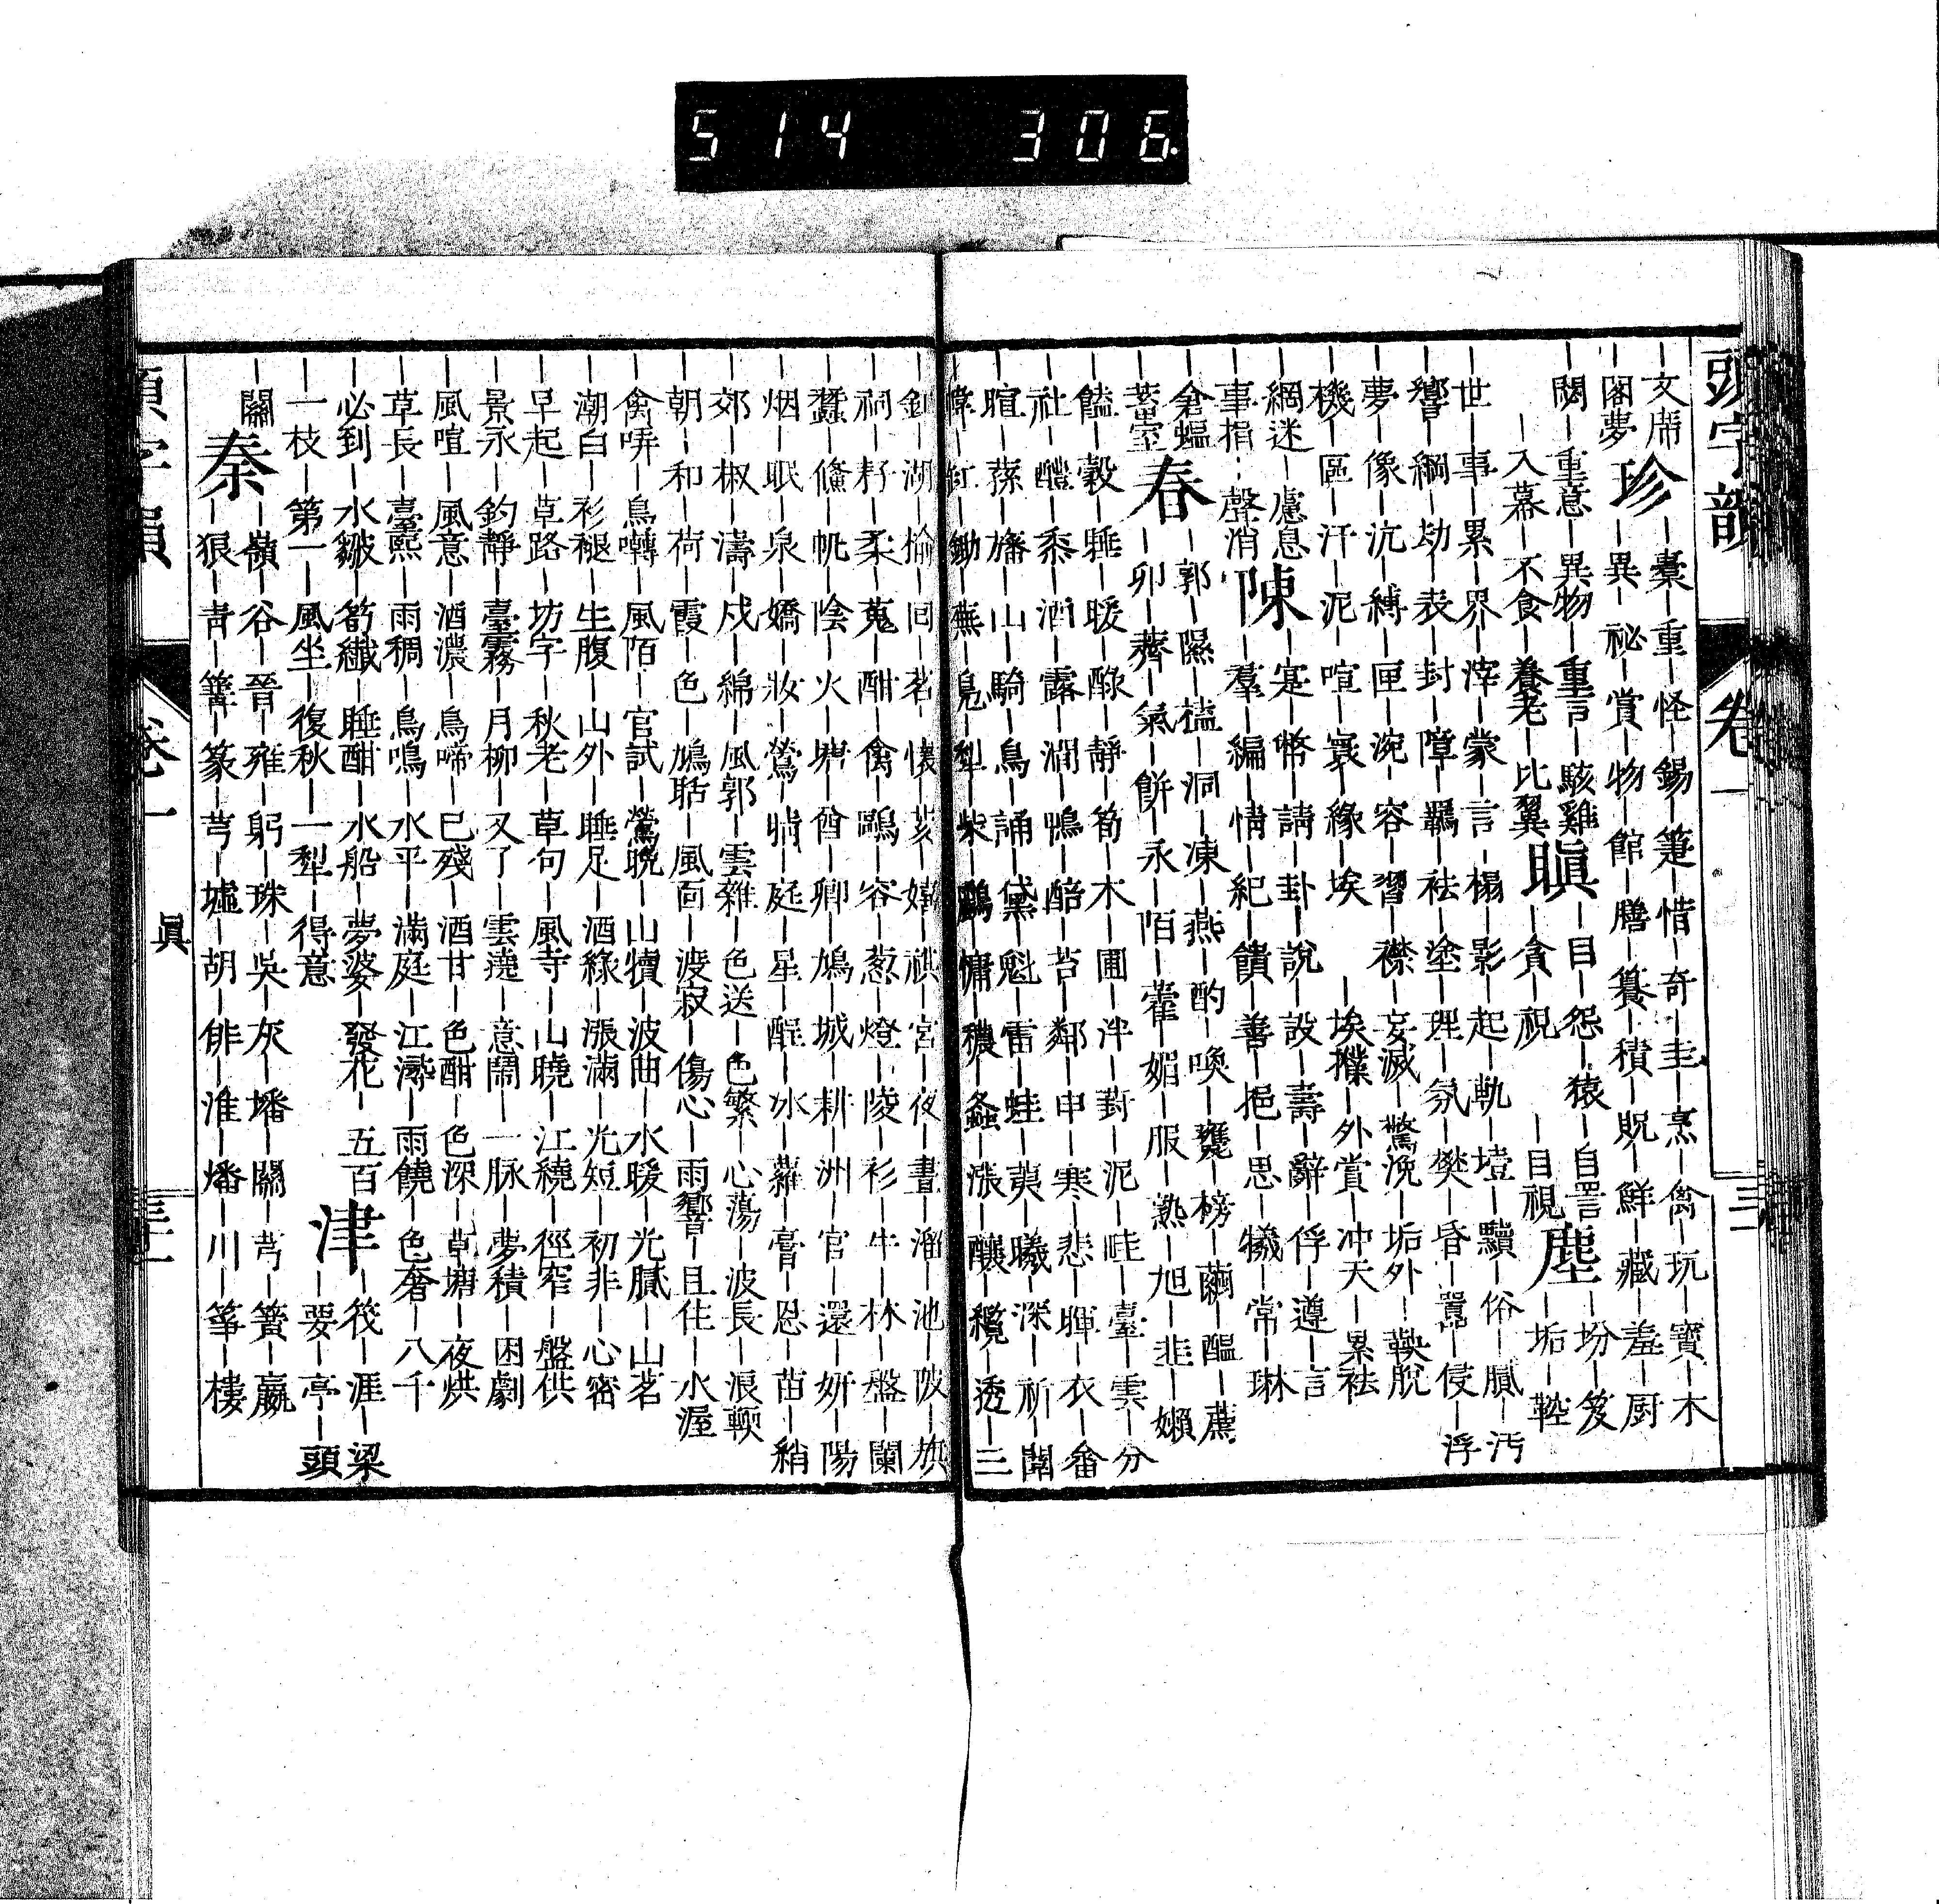 514 306
頭字韻 卷一 三一
｜文席
｜閣夢
珍
｜橐｜重｜怪｜錫｜筵｜惜｜奇｜圭｜烹｜禽｜玩｜寶｜木
｜異｜祕｜賞｜物｜館｜膳｜養｜積｜貺｜鮮｜藏｜羞｜厨
｜閱｜重意｜異物｜重言｜駭雞
｜入幕｜不食｜養老｜比翼
瞋
｜目｜怨｜猿｜自詈
｜貪｜視｜目視
塵
｜坋｜笈
｜垢｜鞚
｜世｜事｜累｜界｜滓｜蒙｜言｜榻｜影｜起｜軌｜壒｜驥｜俗｜膩｜汚
｜響｜綱｜劫｜表｜封｜障｜羈｜袪｜塗｜理｜氛｜樊｜昏｜囂｜侵｜浮
｜夢｜像｜沆｜縛｜匣｜涴｜容｜習｜襟｜妄滅｜驚浼｜垢外｜鞅脫
｜機｜區｜汗｜泥｜喧｜寰｜緣｜埃｜埃撲｜外賞｜冲天｜累袪
｜綱迷｜慮息
｜事捐｜聲消
陳
｜寔｜幣｜請｜卦｜說｜設｜壽｜辭｜俘｜遵｜言
｜羣｜編｜情｜紀｜饋｜善｜挹｜思｜犧｜常｜琳
｜倉蝠
｜蓄室
春
｜郭｜隰｜榼｜洞｜凍｜燕｜酌｜喚｜甕｜榜｜繭｜醞｜蔗
｜卯｜薺｜氣｜餅｜永｜陌｜藿｜媚｜服｜熟｜旭｜韭｜嬾
｜饁｜穀｜睡｜暖｜醁｜靜｜筍｜木｜圃｜泮｜葑｜泥｜畦｜臺｜雲｜分
｜社｜醴｜黍｜酒｜露｜澗｜鴨｜醅｜苔｜鄰｜申｜寒｜悲｜暉｜衣｜畚
｜暄｜蓀｜旛｜山｜騎｜鳥｜誦｜黛｜魁｜雷｜蛙｜荑｜曦｜深｜祈｜闌
｜紅｜鋤｜蕪｜鳧｜犁｜柴｜鷗｜慵｜穠｜螽｜漲｜釀｜纜｜透｜三
｜釦｜湖｜榆｜回｜茗｜懷｜荄｜嬉｜祺｜宮｜夜｜晝｜溜｜池｜陂｜旗
｜祠｜籽｜柔｜蒐｜酣｜禽｜鷗｜容｜葱｜燈｜陵｜衫｜牛｜林｜盤｜闌
｜蠶｜儵｜帆｜陰｜火｜塀｜酋｜卿｜鳩｜城｜耕｜洲｜官｜還｜妍｜陽
｜烟｜眠｜泉｜嬌｜妝｜鶯｜晴｜庭｜星｜酲｜冰｜蘿｜膏｜恩｜苗｜稍
｜郊｜椒｜濤｜戍｜綿｜風郭｜雲雜｜色送｜色繁｜心蕩｜波長｜浪輭
｜朝｜和｜荷｜霞｜色｜鳩聒｜風面｜波寂｜傷心｜雨響｜且住｜水渥
｜禽哢｜鳥囀｜風陌｜官試｜鶯晚｜山犢｜波曲｜水暖｜光膩｜山茗
｜潮白｜衫褪｜生腹｜山外｜睡足｜酒綠｜漲滿｜光短｜初非｜心密
｜早起｜草路｜坊字｜秋老｜草句｜風寺｜山曉｜江繞｜徑窄｜盤供
｜景永｜釣靜｜臺霧｜月柳｜又了｜雲遶｜意鬧｜一脉｜夢積｜困劇
｜風喧｜風意｜酒濃｜鳥啼｜已殘｜酒甘｜色酣｜色深｜草塘｜夜烘
｜草長｜臺熙｜雨稠｜鳥鳴｜水平｜滿庭｜江瀲｜雨饒｜色奢｜八千
｜必到｜水皺｜筍纖｜睡酣｜水船｜夢婆｜發花｜五百
｜一枝｜第一｜風坐｜復秋｜一犁｜得意
津
｜筏｜涯｜梁
｜要｜亭｜頭
｜關
秦
｜嶺｜谷｜晉｜雍｜躬｜珠｜吳｜灰｜墦｜關｜芎｜簧｜嬴
｜狼｜青｜篝｜篆｜芎｜墟｜胡｜俳｜淮｜燔｜川｜箏｜樓
頭字韻 卷一 眞 三一